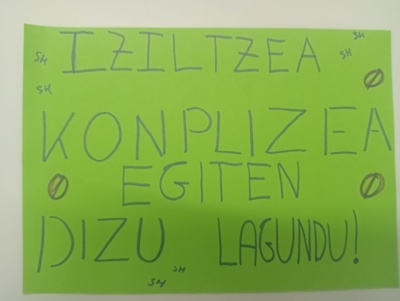 SH SH
IZILTZEA SH
SH
KONPLIZEA
EGITEN
DIZU LAGUNDU!
SH SH